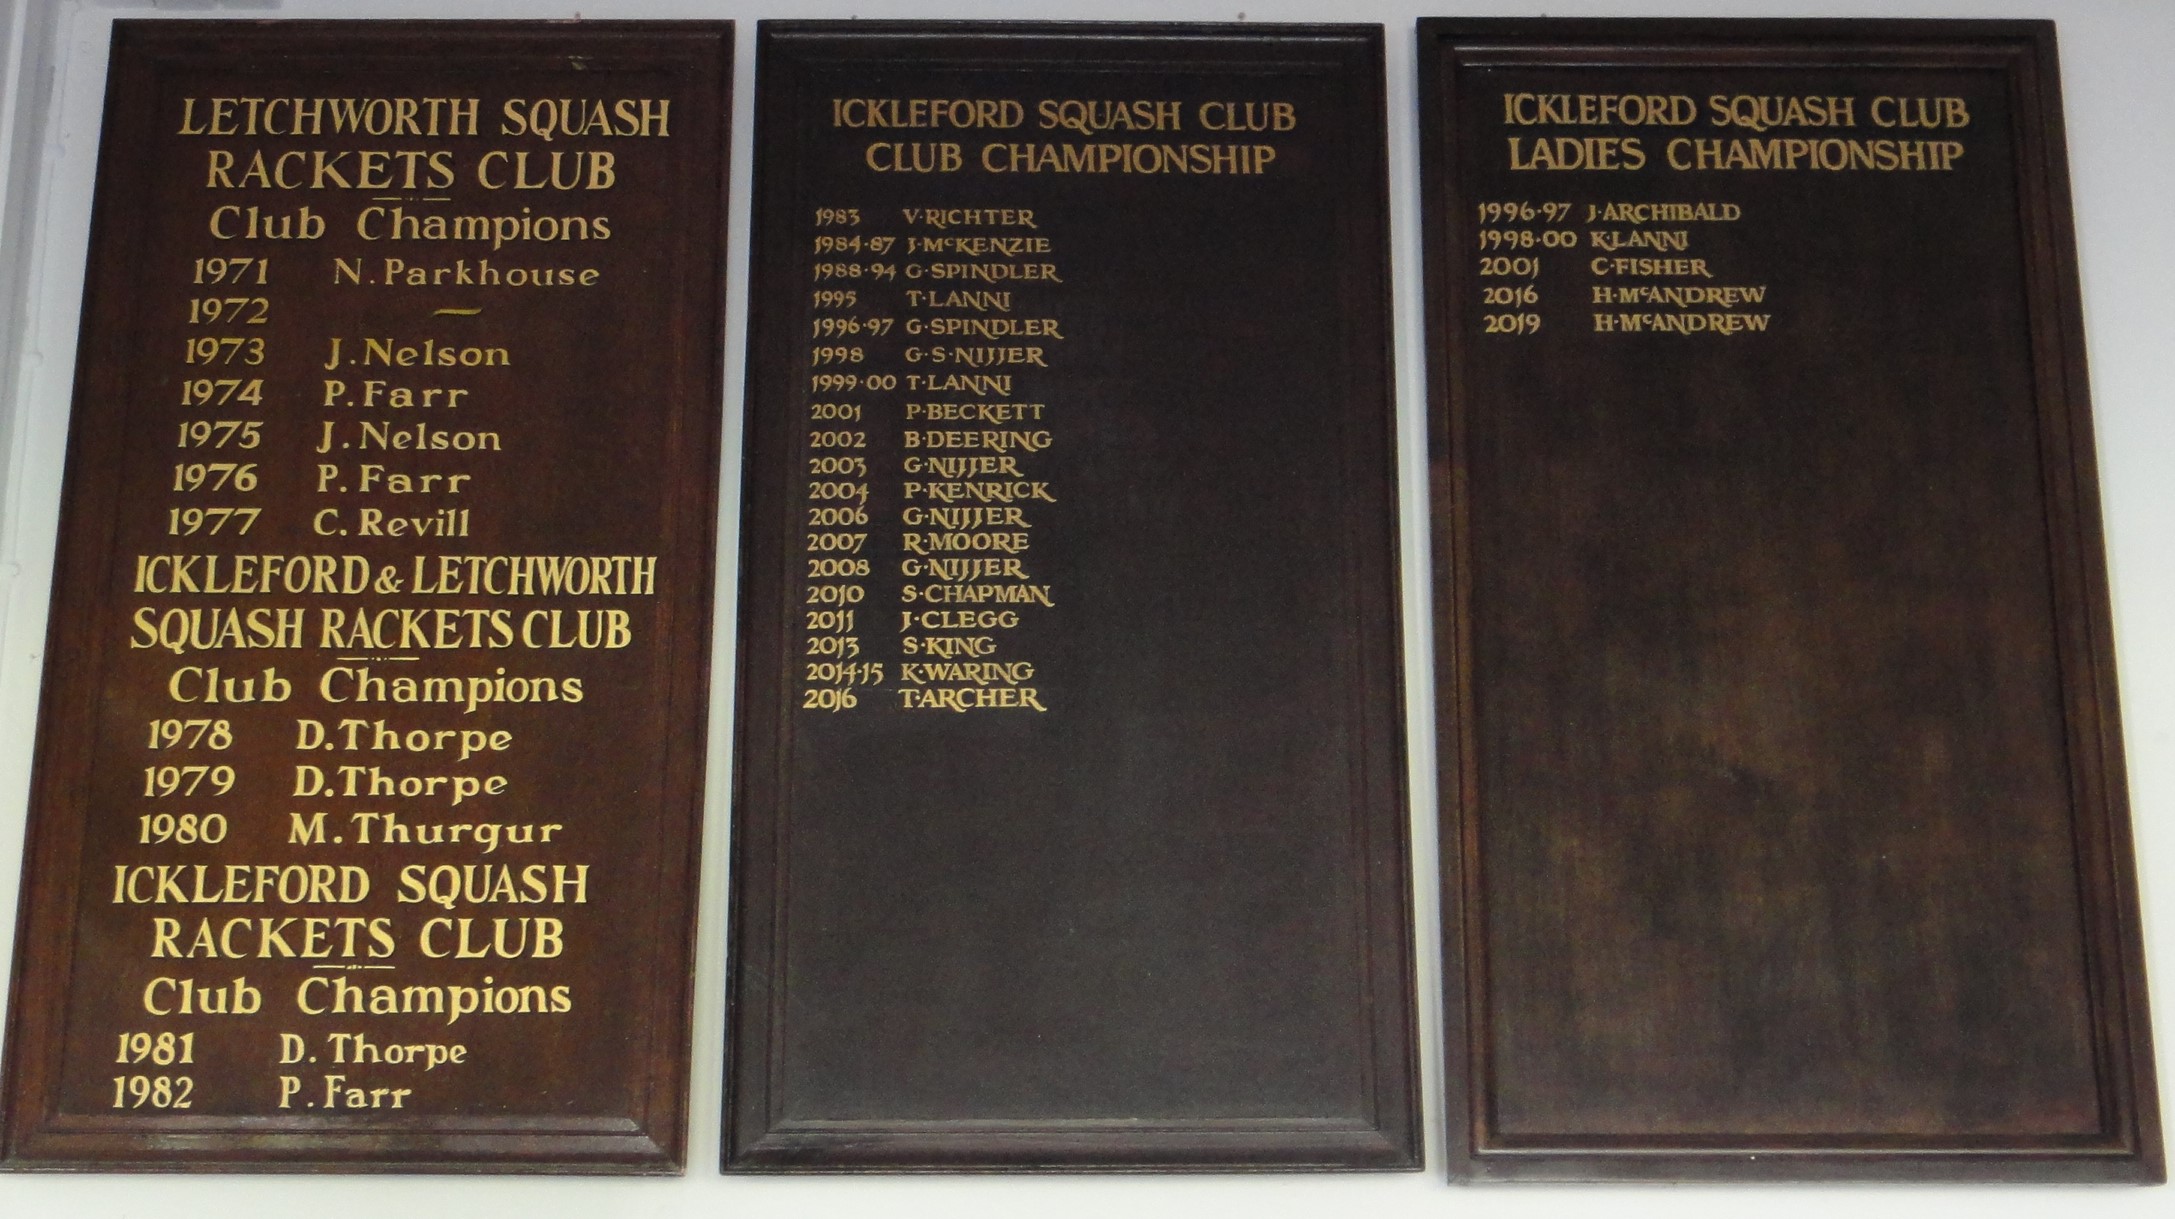 LETCHWORTH SQUASH
RACKETS CLUB
Club Champions
1971 N. Parkhouse
1972 —
1973 J. Nelson
1974 P. Farr
1975 J. Nelson
1976 P. Farr
1977 C. Revill
ICKLEFORD & LETCHWORTH
SQUASH RACKETS CLUB
Club Champions
1978 D. Thorpe
1979 D. Thorpe
1980 M. Thurgur
ICKLEFORD SQUASH
RACKETS CLUB
Club Champions
1981 D. Thorpe
1982 P. Farr
ICKLEFORD SQUASH CLUB
CLUB CHAMPIONSHIP
1983 V·RICHTER
1984·87 J·McKENZIE
1988·94 G·SPINDLER
1995 T·LANNI
1996·97 G·SPINDLER
1998 G·S·NIJJER
1999·00 T·LANNI
2001 P·BECKETT
2002 B·DEERING
2003 G·NIJJER
2004 P·KENRICK
2006 G·NIJJER
2007 R·MOORE
2008 G·NIJJER
2010 S·CHAPMAN
2011 J·CLEGG
2013 S·KING
2014·15 K·WARING
2016 T·ARCHER
ICKLEFORD SQUASH CLUB
LADIES CHAMPIONSHIP
1996·97 J·ARCHIBALD
1998·00 K·LANNI
2001 C·FISHER
2016 H·McANDREW
2019 H·McANDREW